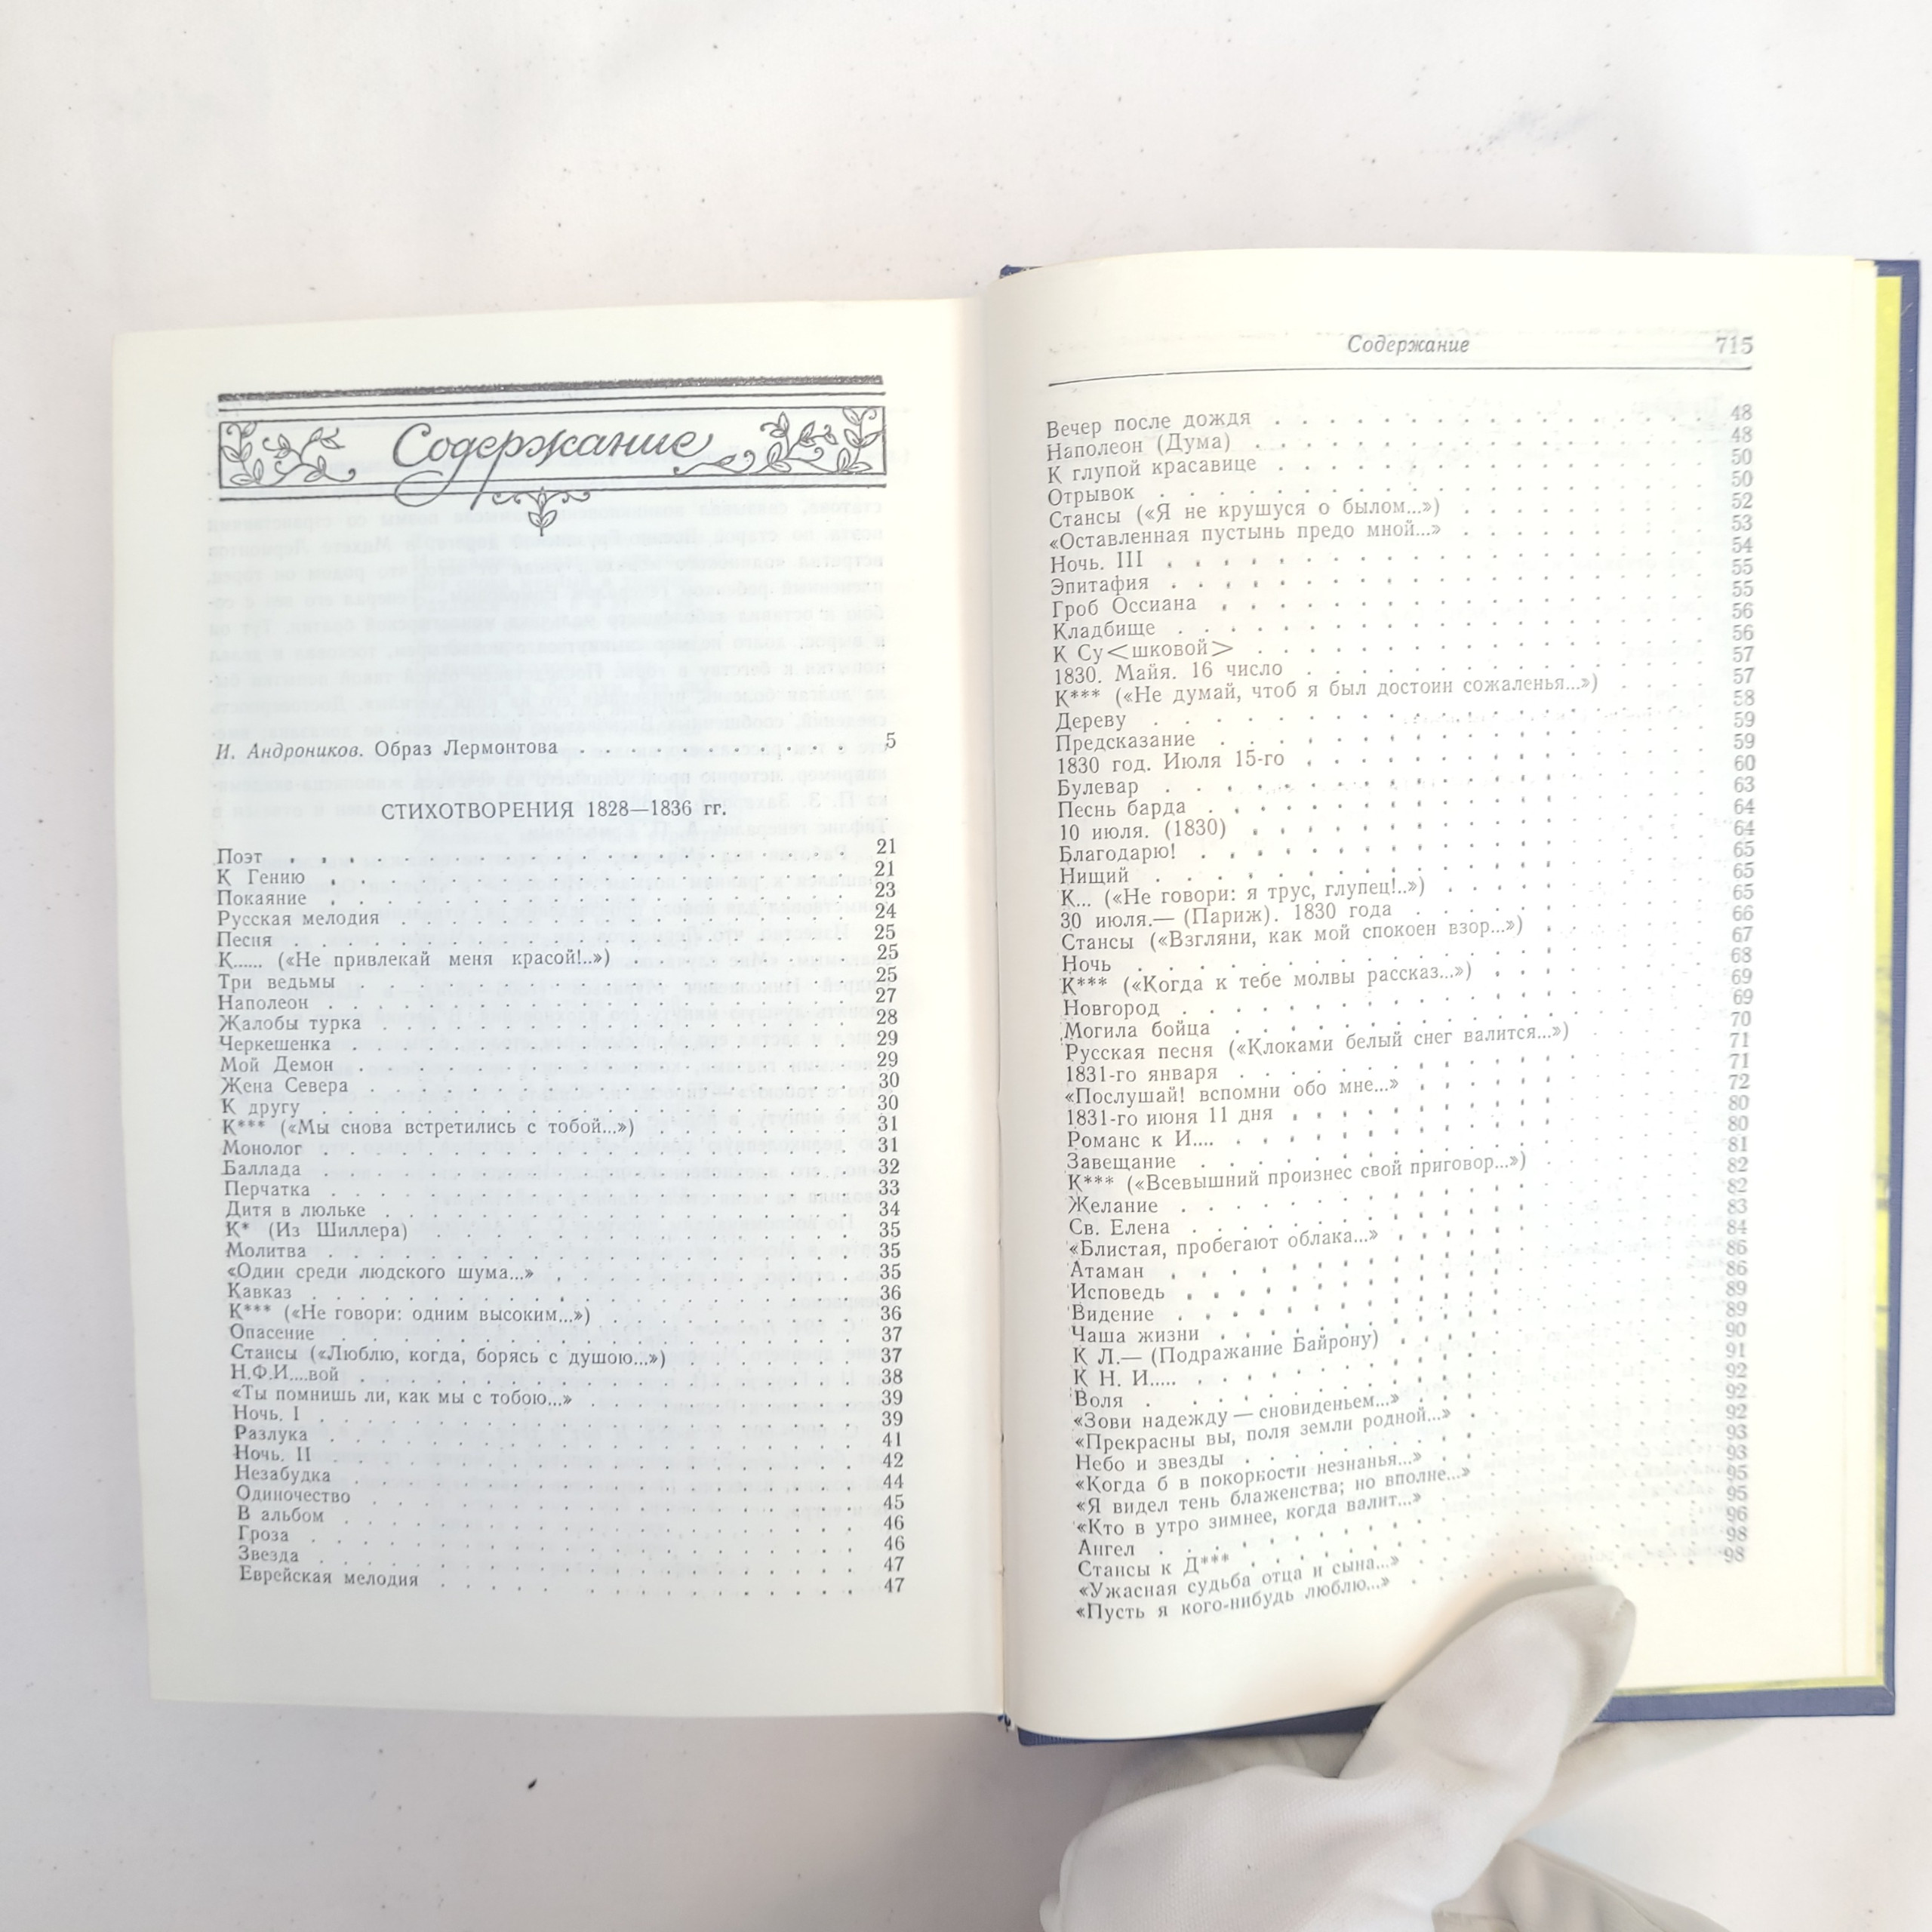 Содержание
И. Андроников. Образ Лермонтова . . . 5
СТИХОТВОРЕНИЯ 1828—1836 гг.
Поэт . . . 21
К Гению . . . 21
Покаяние . . . 23
Русская мелодия . . . 24
Песня . . . 25
К...... («Не привлекай меня красой!..») . . . 25
Три ведьмы . . . 25
Наполеон . . . 27
Жалобы турка . . . 28
Черкешенка . . . 29
Мой Демон . . . 29
Жена Севера . . . 30
К другу . . . 30
К*** («Мы снова встретились с тобой...») . . . 31
Монолог . . . 31
Баллада . . . 32
Перчатка . . . 33
Дитя в люльке . . . 34
К* (Из Шиллера) . . . 35
Молитва . . . 35
«Один среди людского шума...» . . . 35
Кавказ . . . 36
К*** («Не говори: одним высоким...») . . . 36
Опасение . . . 37
Стансы («Люблю, когда, борясь с душою...») . . . 37
Н.Ф.И....вой . . . 38
«Ты помнишь ли, как мы с тобою...» . . . 39
Ночь. I . . . 39
Разлука . . . 41
Ночь. II . . . 42
Незабудка . . . 44
Одиночество . . . 45
В альбом . . . 46
Гроза . . . 46
Звезда . . . 47
Еврейская мелодия . . . 47
Содержание 715
Вечер после дождя . . . 48
Наполеон (Дума) . . . 48
К глупой красавице . . . 50
Отрывок . . . 50
Стансы («Я не крушуся о былом...») . . . 52
«Оставленная пустынь предо мной...» . . . 53
Ночь. III . . . 54
Эпитафия . . . 55
Гроб Оссиана . . . 55
Кладбище . . . 56
К Су<шковой> . . . 56
1830. Майя. 16 число . . . 57
К*** («Не думай, чтоб я был достоин сожаленья...») . . . 57
Дереву . . . 58
Предсказание . . . 59
1830 год. Июля 15-го . . . 59
Булевар . . . 60
Песнь барда . . . 63
10 июля. (1830) . . . 64
Благодарю! . . . 64
Нищий . . . 65
К... («Не говори: я трус, глупец!..») . . . 65
30 июля.— (Париж). 1830 года . . . 65
Стансы («Взгляни, как мой спокоен взор...») . . . 66
Ночь . . . 67
К*** («Когда к тебе молвы рассказ...») . . . 68
Новгород . . . 69
Могила бойца . . . 69
Русская песня («Клоками белый снег валится...») . . . 70
1831-го января . . . 71
«Послушай! вспомни обо мне...» . . . 71
1831-го июня 11 дня . . . 72
Романс к И.... . . . 80
Завещание . . . 80
К*** («Всевышний произнес свой приговор...») . . . 81
Желание . . . 82
Св. Елена . . . 82
«Блистая, пробегают облака...» . . . 83
Атаман . . . 84
Исповедь . . . 86
Видение . . . 86
Чаша жизни . . . 89
К Л.— (Подражание Байрону) . . . 89
К Н. И..... . . . 90
Воля . . . 91
«Зови надежду — сновиденьем...» . . . 92
«Прекрасны вы, поля земли родной...» . . . 92
Небо и звезды . . . 92
«Когда б в покорности незнанья...» . . . 93
«Я видел тень блаженства; но вполне...» . . . 93
«Кто в утро зимнее, когда валит...» . . . 95
Ангел . . . 95
Стансы к Д*** . . . 96
«Ужасная судьба отца и сына...» . . . 98
«Пусть я кого-нибудь люблю...» . . . 98